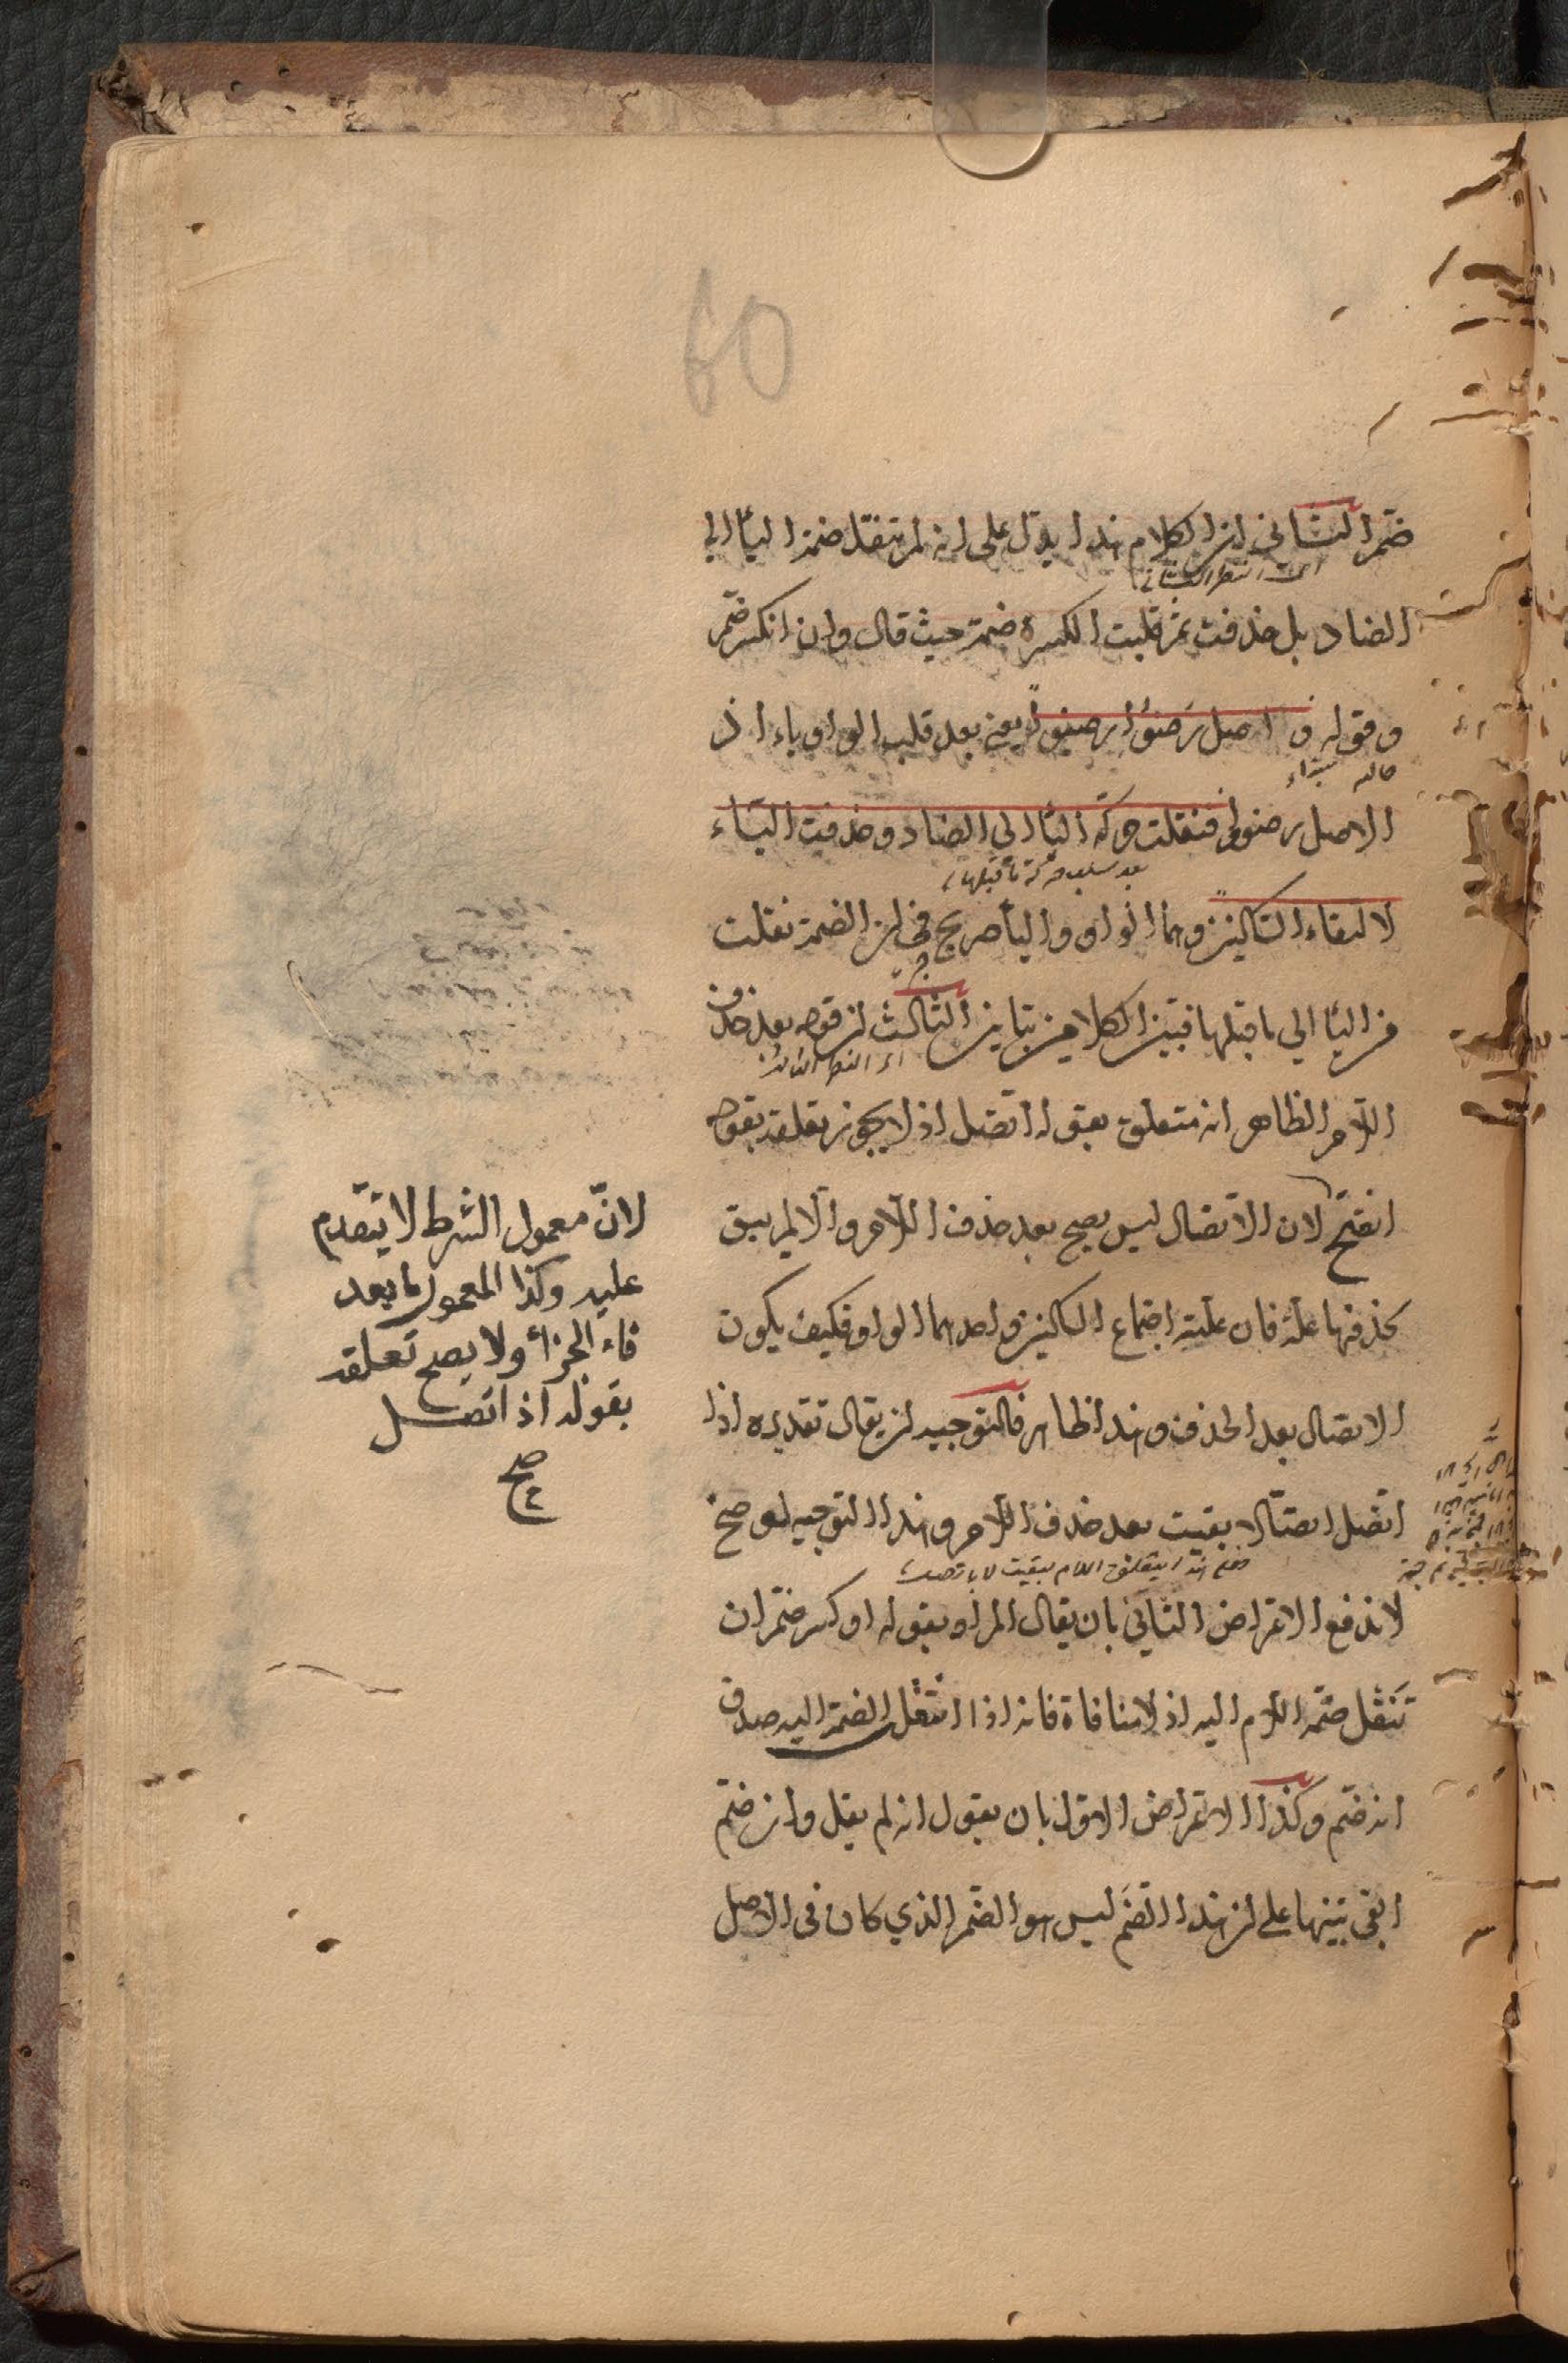 60
ضم الثاني ان الكلام هذا يدل على انه لم تنقل ضمة الياء الى
اى النظر الثاني
الضاد بل حذفت ثم قلبت الكسرة ضمة حيث قال وان انكسر ضم
وقوله و اصل رضوا رضيوا يعني بعد قلب الواو ياء اذ
حاله مبتداء
الاصل رضووا فنقلت حركة الياء الى الضاد وحذفت الياء
بعد سلب حركة ما قبلها
لالتقاء الساكنين وهما الواو والياء صريح في ان الضمة نقلت
من الياء الى ما قبلها فبين الكلامين تباين الثالث ان قوله بعد حذف
اى النظر الثالث
اللام الظاهر انه متعلق بقوله اتصل اذ لا يجوز تعلقه بقوله
انفتح لان الاتصال ليس يصح بعد حذف اللام والا لم يبق
لحذفها علة فان علته اجتماع الساكنين واحدهما الواو فكيف يكون
الاتصال بعد الحذف وهذا ظاهر فالتوجيه ان يقال تقديره اذا
اتصل اتصالا بقيت بعد حذف اللام وهذا التوجيه لو صح
فعلى هذا يتعلق اللام ببقيت لا باتصلت
لاندفع الاعتراض الثاني بان يقال المراد بقوله او كسر ضم ان
تنقل ضمة اللام اليه اذ لا منافاة فانه اذا انتقل الضمة اليه صدق
انه ضم وكذا الاعتراض الاول بان يقول انه لم يقل وان ضم
ابقى تنبيها على ان هذا الضم ليس هو الضم الذي كان في الاصل
لانّ معمول الشرط لا يتقدم
عليه وكذا المعمول لما بعد
فاء الجزاء ولا يصح تعلقه
بقوله اذ اتصل
صح